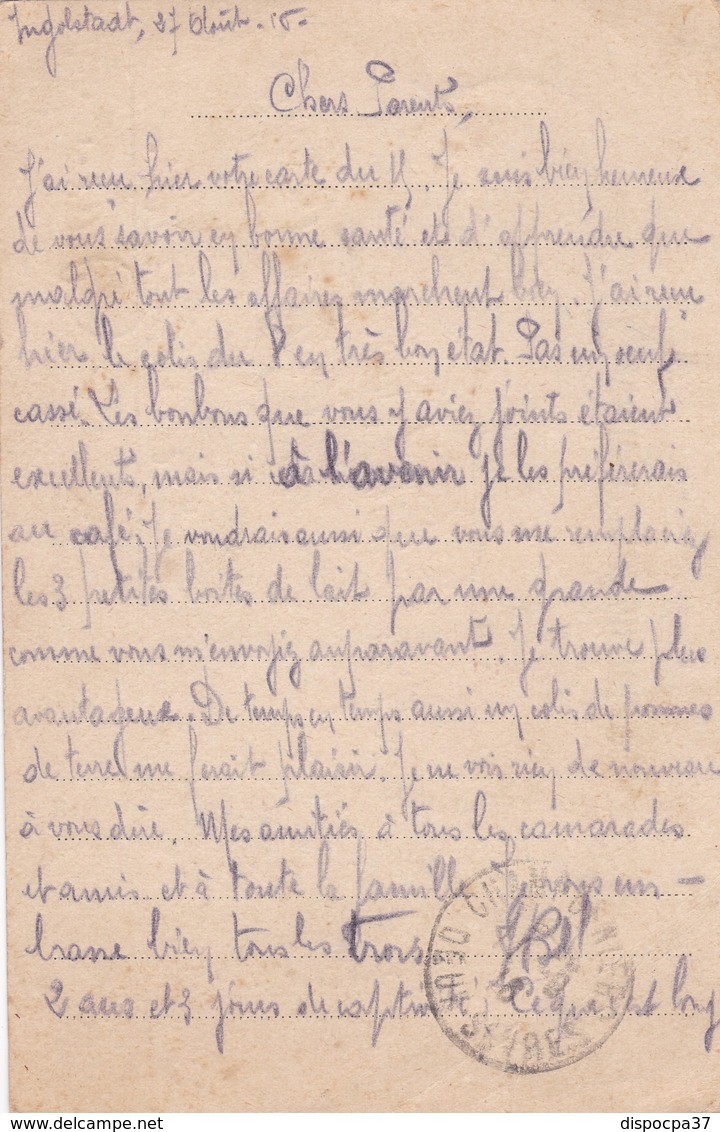 Ingolstadt, 27 Août
Chers Parents,
J'ai reçu hier votre carte du Je suis bien heureux
de vous savoir en bonne santé et d'apprendre que
malgré tout les affaires marchent bien. J'ai reçu
hier le colis du en très bon état. Pas un oeuf
cassé. Les bonbons que vous y aviez joints étaient
excellents, mais si à l'avenir je les préférerais
au café. Je voudrais aussi que vous me remplaciez
les 3 petites boîtes de lait par une grande
comme vous m'envoyiez auparavant. Je trouve plus
avantageux. De temps en temps aussi un colis de pommes
de terre me ferait plaisir. Je ne vois rien de nouveau
à vous dire. Mes amitiés à tous les camarades
et amis et à toute la famille. Je vous em-
brasse bien tous les trois
2 ans et 3 jours de captivité, Ce que c'est long
dispocpa37